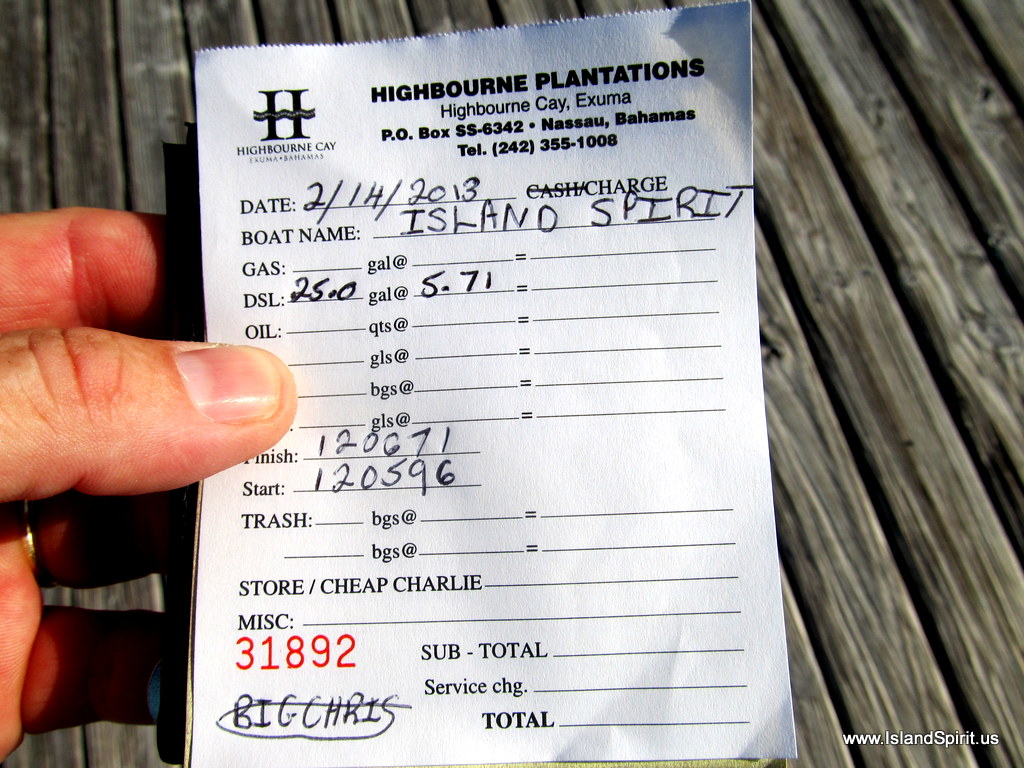 HIGHBOURNE PLANTATIONS
Highbourne Cay, Exuma
P.O. Box SS-6342 • Nassau, Bahamas
Tel. (242) 355-1008
H
HIGHBOURNE CAY
EXUMA • BAHAMAS
DATE: 2/14/2013 CASH/CHARGE
BOAT NAME: ISLAND SPIRIT
GAS: gal@ =
DSL: 25.0 gal@ 5.71 =
OIL: qts@ =
gls@ =
bgs@ =
gls@ =
inish: 120671
Start: 120596
TRASH: bgs@ =
bgs@ =
STORE / CHEAP CHARLIE
MISC:
31892 SUB - TOTAL
Service chg.
BIG CHRIS TOTAL
www.IslandSpirit.us